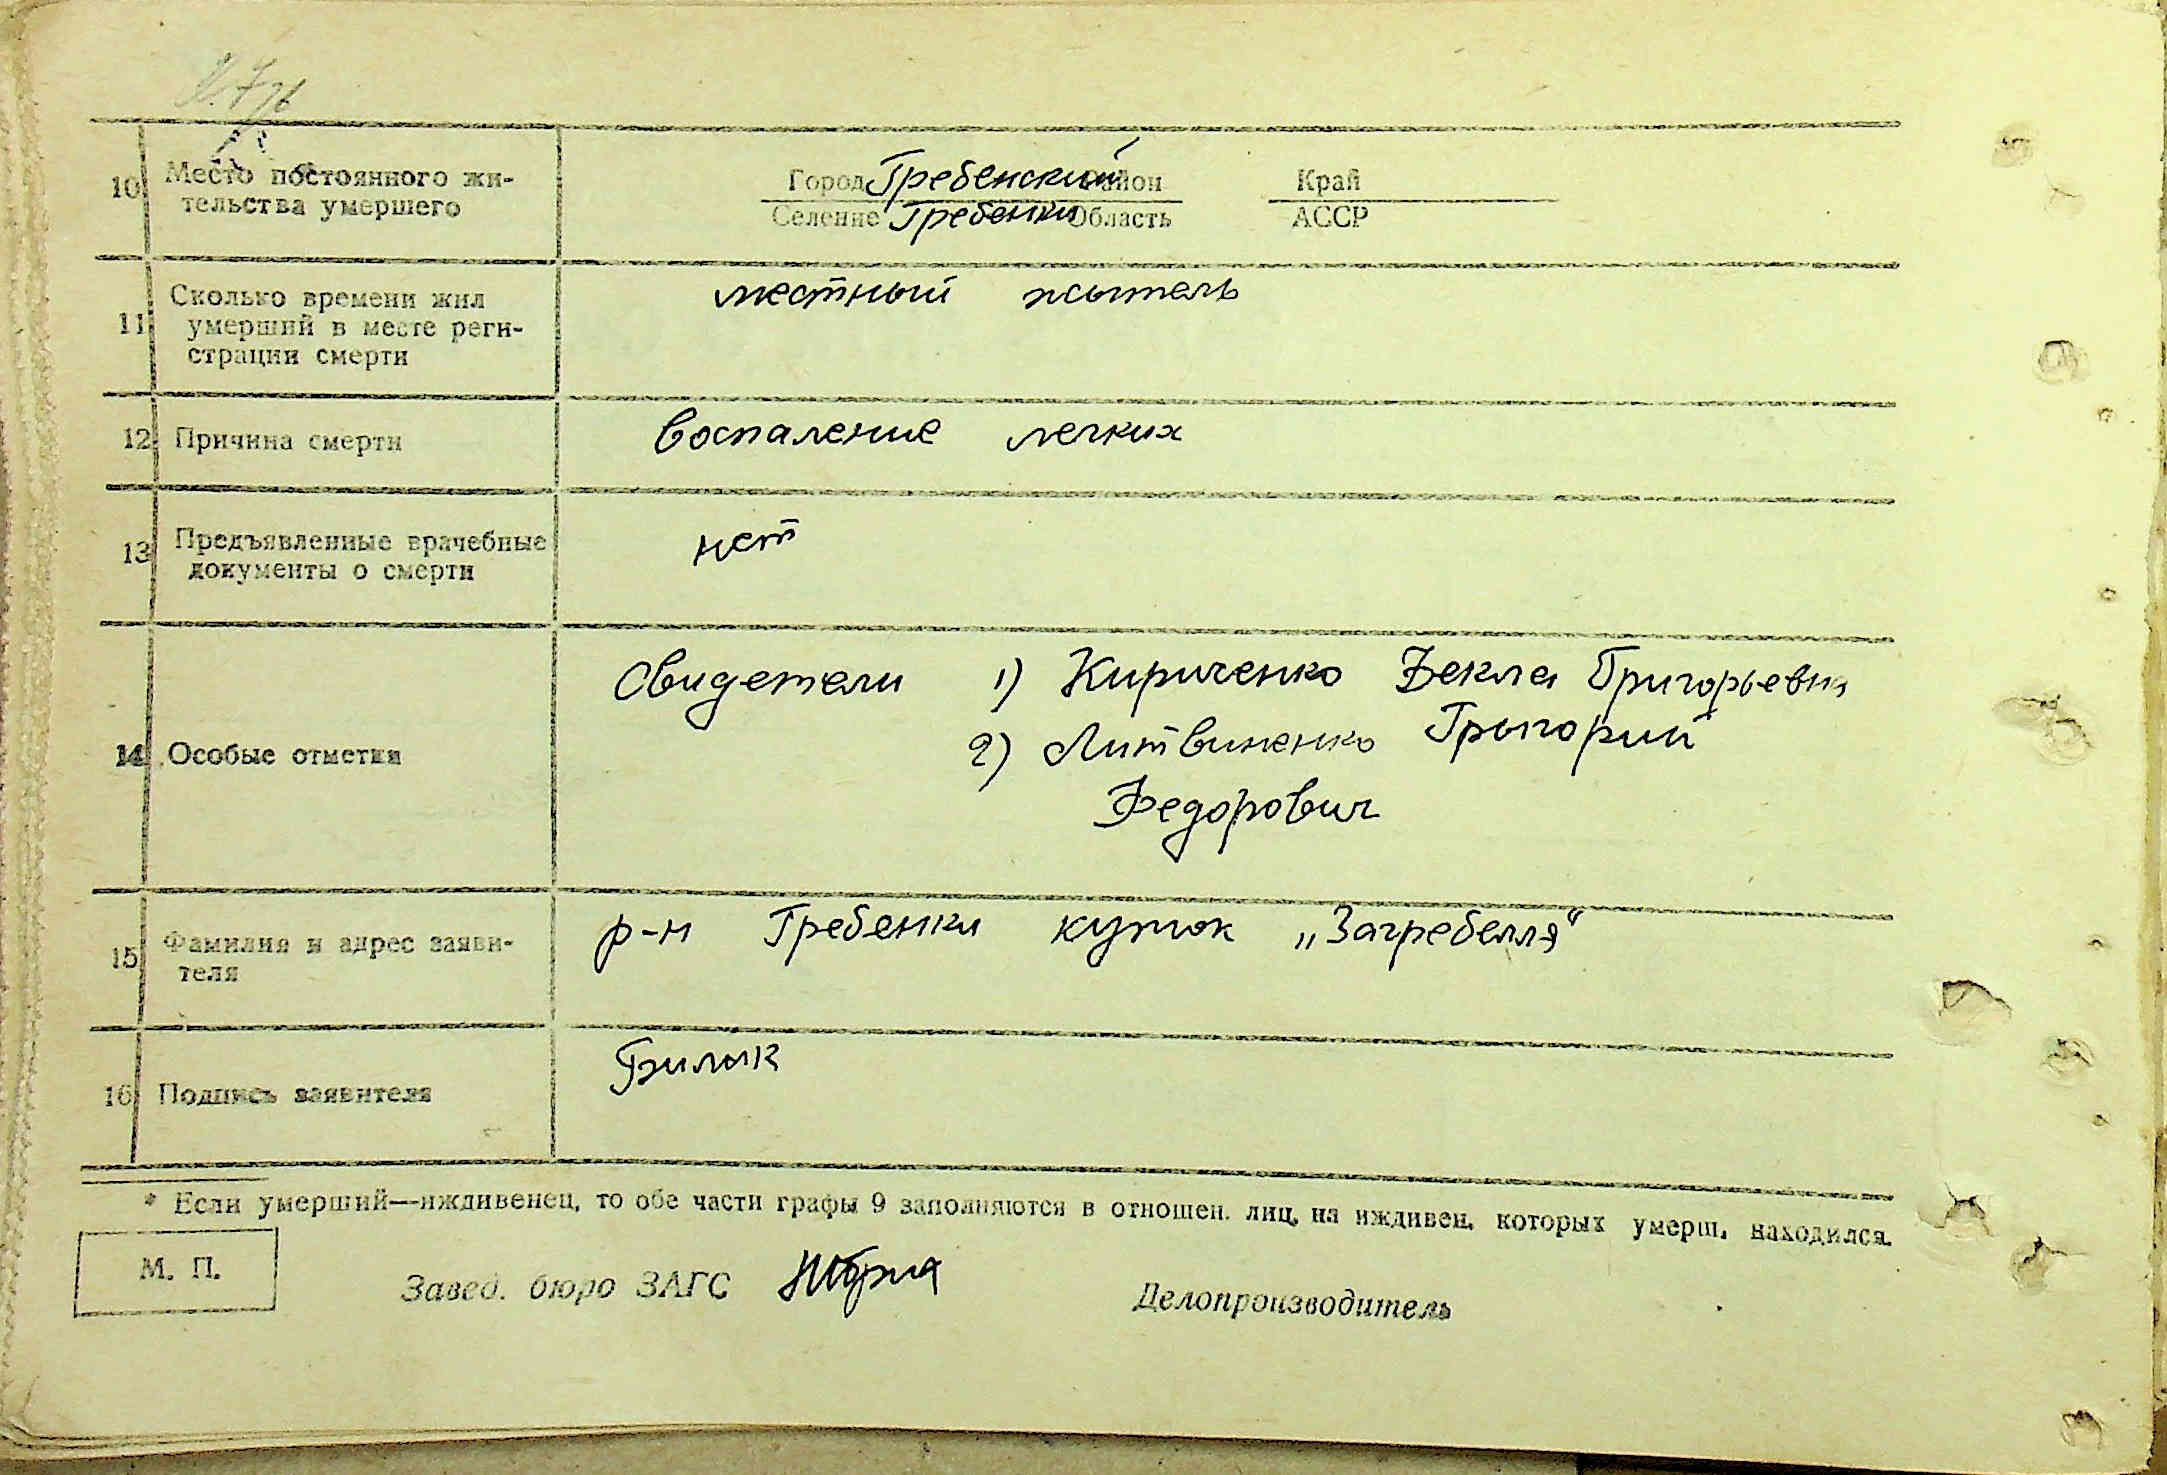 10 Место постоянного жи-
тельства умершего
Город Гребенский Район Край
Селение Гребенки Область АССР
11 Сколько времени жил
умерший в месте реги-
страции смерти
местный жытель
12 Причина смерти
воспаление легких
13 Предъявленные врачебные
документы о смерти
нет
14 Особые отметки
Свидетели 1) Кириченко Фекла Григорьевна
2) Литвиненко Грыгорий
Федорович
15 Фамилия и адрес заяви-
теля
р-н Гребенки куток „Загребелля“
16 Подпись заявителя
Билык
* Если умерший—иждивенец, то обе части графы 9 заполняются в отношен. лиц, на иждивен. которых умерш. находился.
М. П.
Завед. бюро ЗАГС
Делопроизводитель